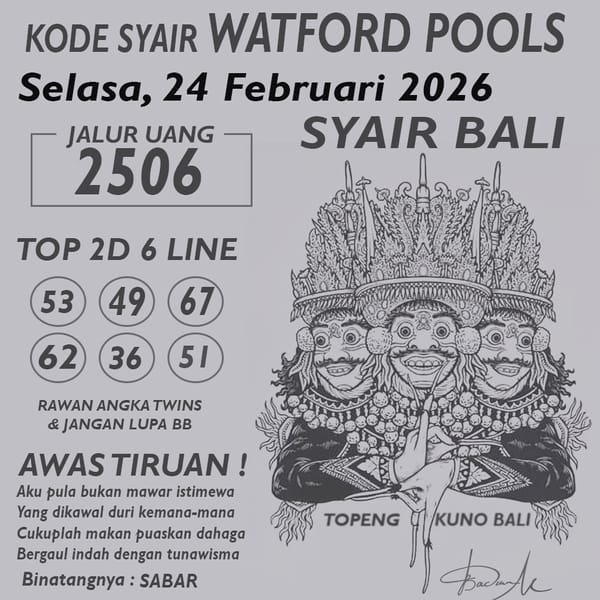 KODE SYAIR WATFORD POOLS
Selasa, 24 Februari 2026
JALUR UANG
2506
SYAIR BALI
TOP 2D 6 LINE
53 49 67
62 36 51
RAWAN ANGKA TWINS
& JANGAN LUPA BB
AWAS TIRUAN !
Aku pula bukan mawar istimewa
Yang dikawal duri kemana-mana
Cukuplah makan puaskan dahaga
Bergaul indah dengan tunawisma
Binatangnya : SABAR
TOPENG KUNO BALI